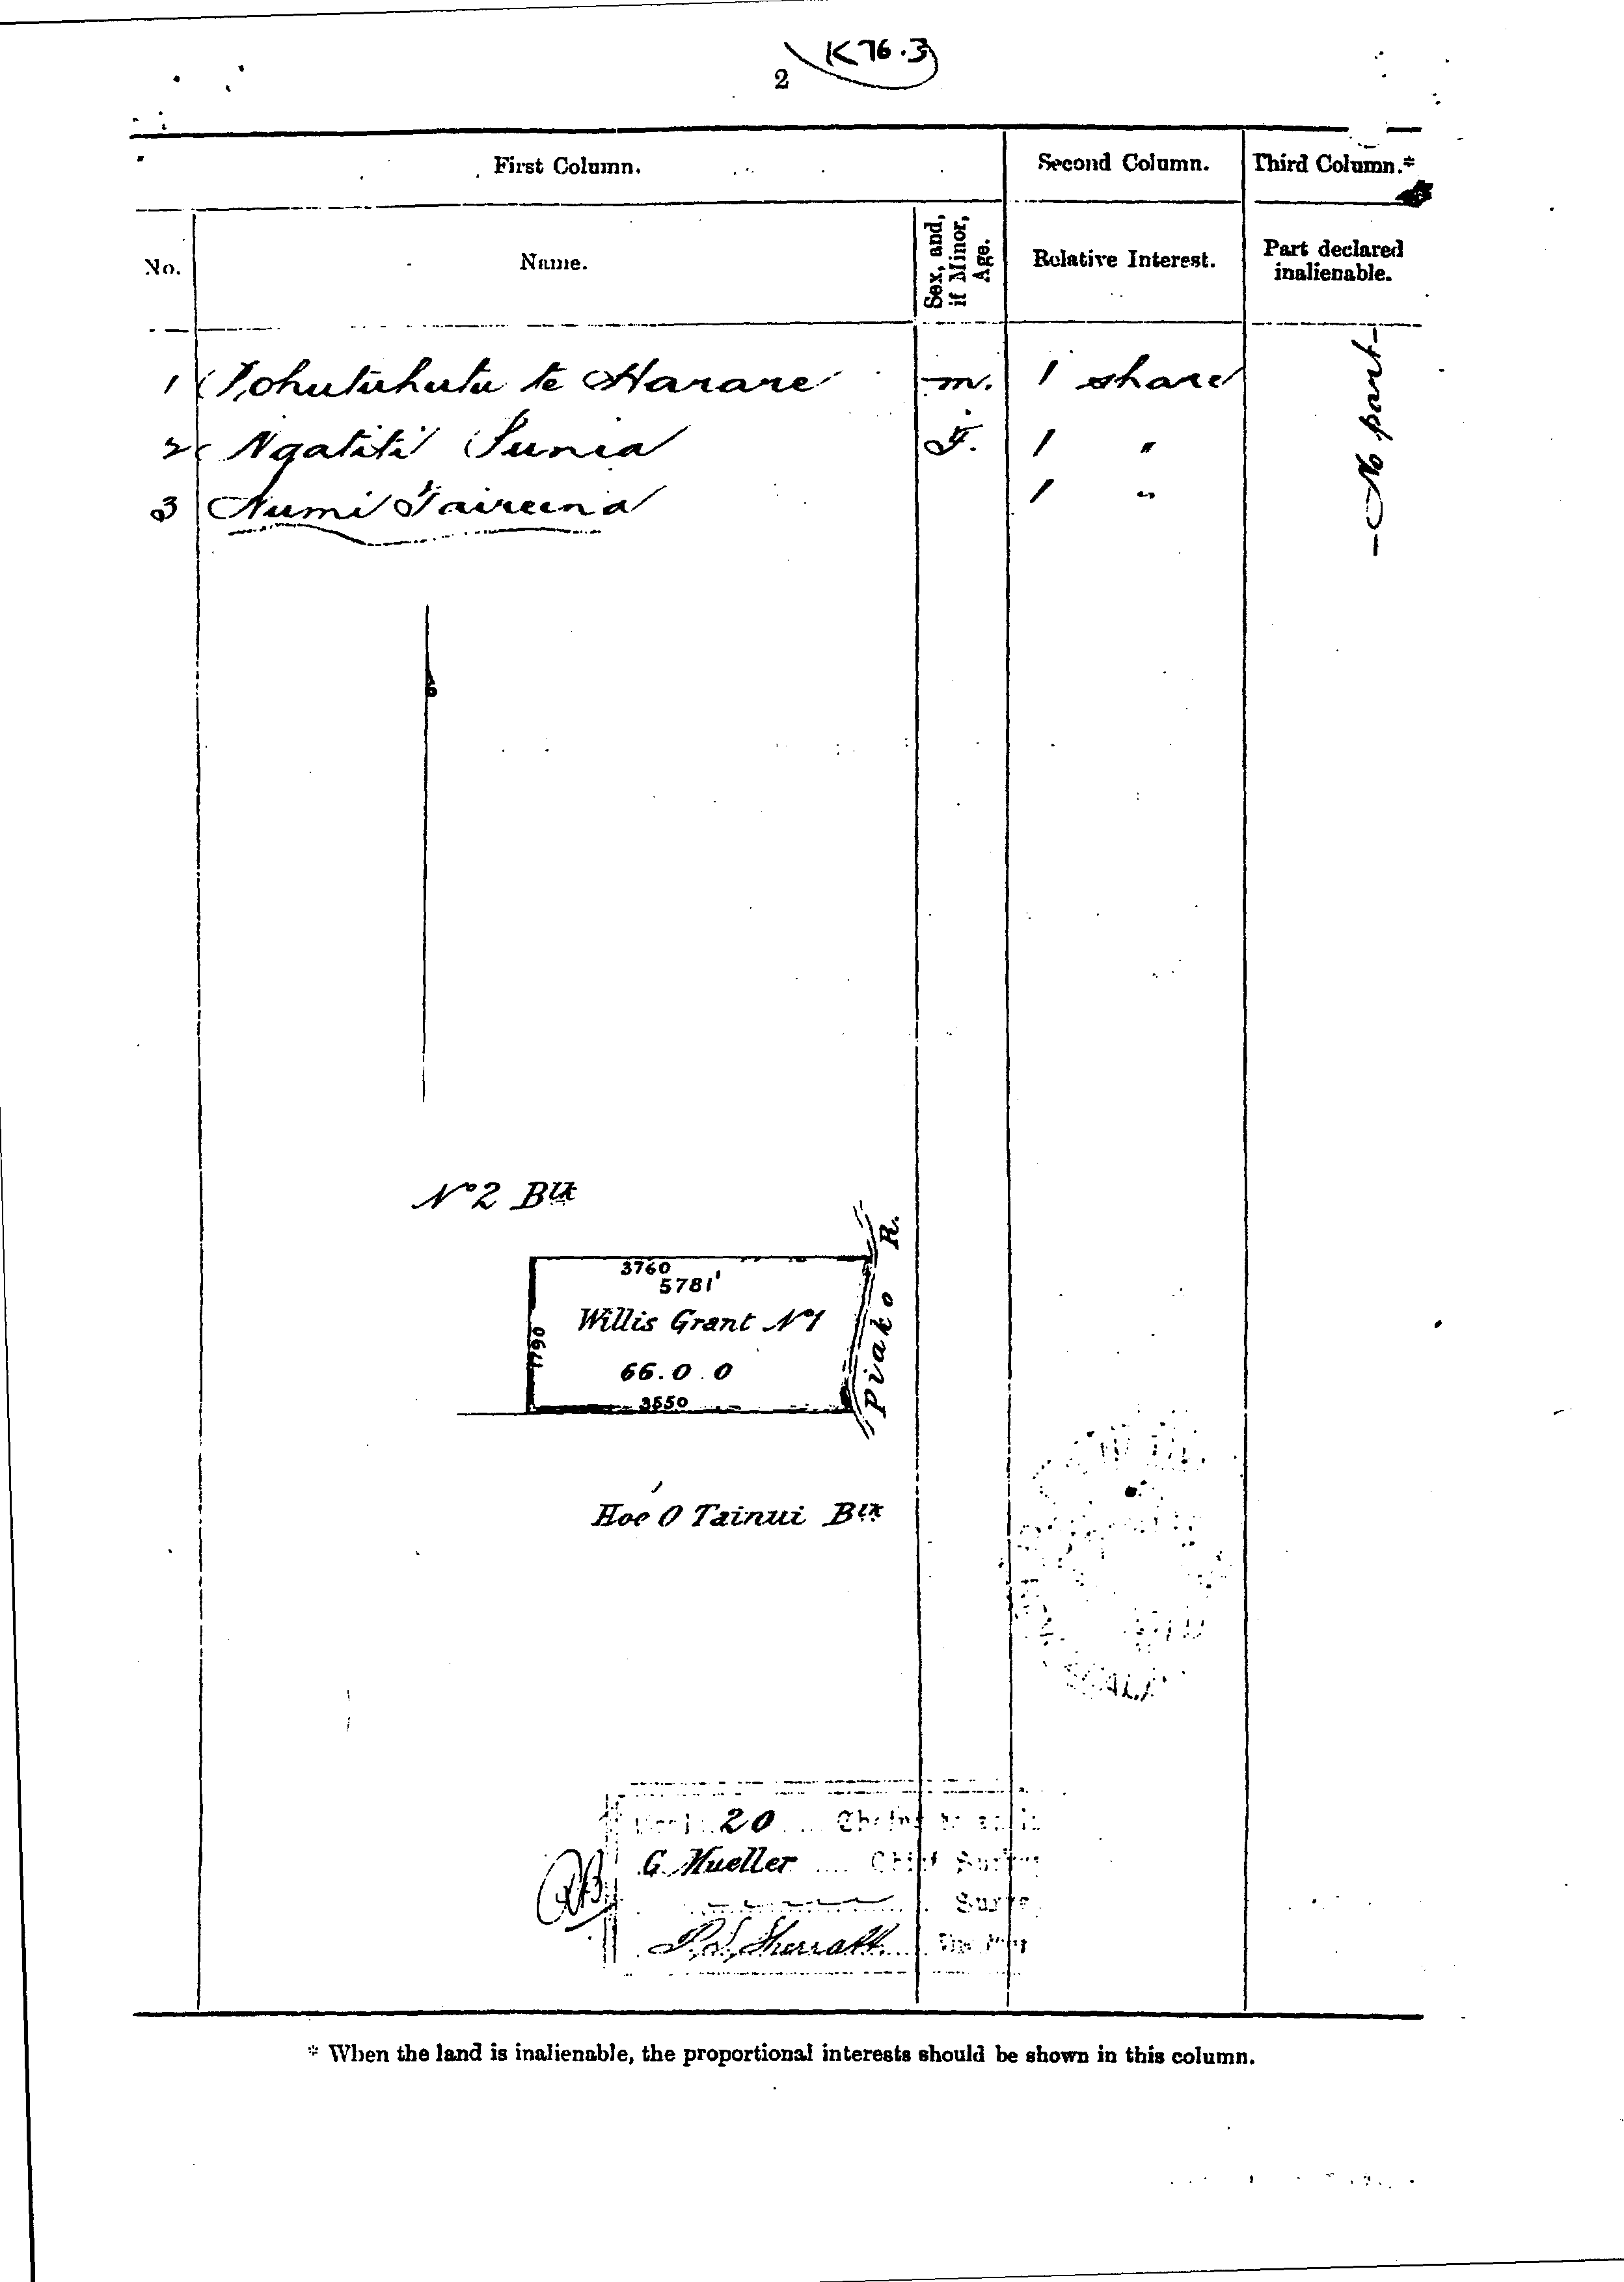 K 76.3
2
First Column.
Second Column.
Third Column.*
No.
Name.
Sex, and, if Minor, Age.
Relative Interest.
Part declared inalienable.
1 Pohutuhutu te Harare m. 1 share
2 Ngatiti Punia F. 1 "
3 Numi Taireena 1 "
—No part—
No 2 Blk
3760
5781'
Willis Grant No 1
1760
66.0.0
3550
Piako R.
Hoe O Tainui Blk
20 Chains to an in
G. Mueller Chief Surv
Surve
P. S. Sherratt
* When the land is inalienable, the proportional interests should be shown in this column.